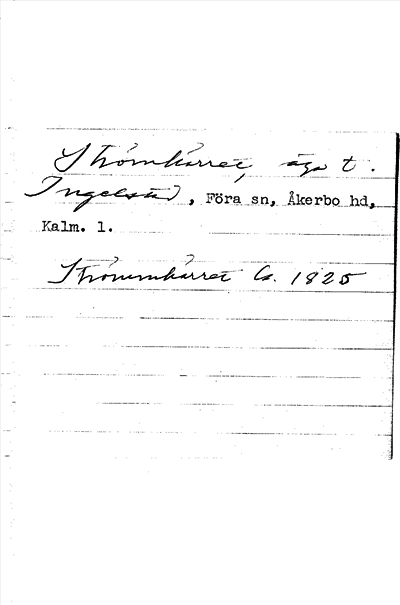 Strömkärret, äga t.
Ingelstad, Föra sn, Åkerbo hd,
Kalm. l.
Strömmkärret C. 1825